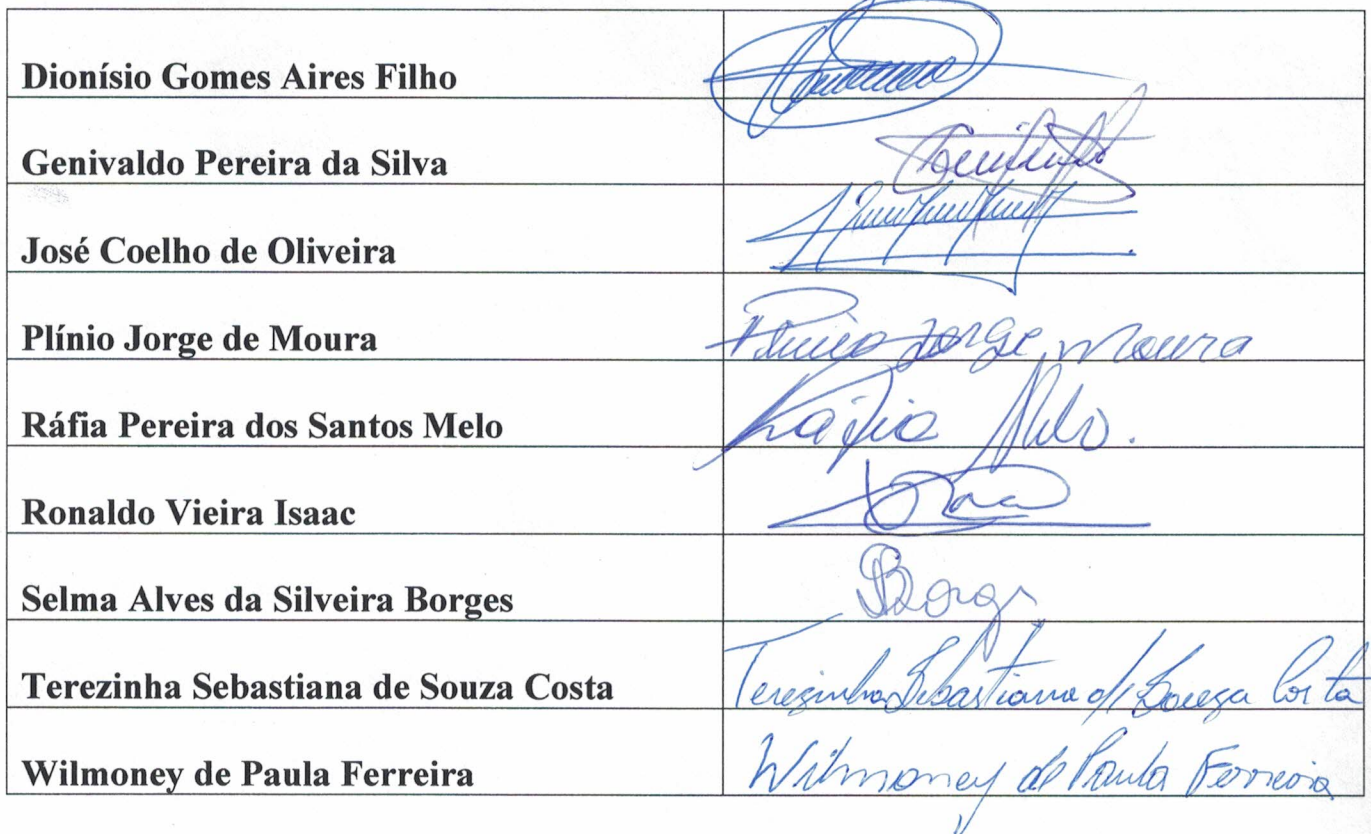 Dionísio Gomes Aires Filho
Genivaldo Pereira da Silva
José Coelho de Oliveira
Plínio Jorge de Moura Plinio Jorge Moura
Ráfia Pereira dos Santos Melo Ráfia Melo.
Ronaldo Vieira Isaac
Selma Alves da Silveira Borges SBorges
Terezinha Sebastiana de Souza Costa Terezinha Sebastiana de Souza Costa
Wilmoney de Paula Ferreira Wilmoney de Paula Ferreira